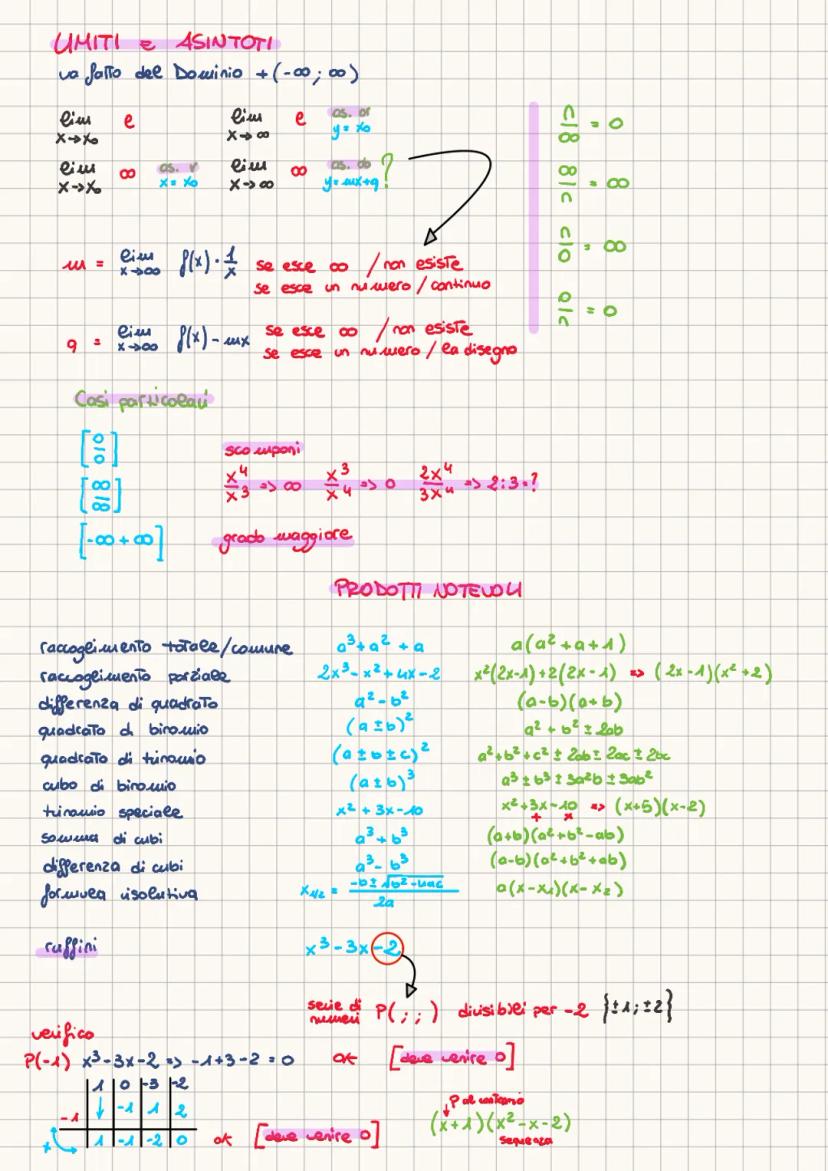 LIMITI e ASINTOTI
va fatto del Dominio + (-∞ ; ∞)
lim x→x₀ e lim x→∞ e as. or y = x₀
lim x→x₀ ∞ as. v x = x₀ lim x→∞ ∞ as. ob y = mx+q ?
n/∞ = 0
∞/n = ∞
n/0 = ∞
0/n = 0
m = lim x→∞ f(x) · 1/x se esce ∞ / non esiste
se esce un numero / continuo
q = lim x→∞ f(x) - mx se esce ∞ / non esiste
se esce un numero / la disegno
Casi particolari
[0/0] scomponi
[∞/∞] x⁴/x³ => ∞ x³/x⁴ => 0 2x⁴/3x⁴ => 2:3=?
[-∞ + ∞] grado maggiore
PRODOTTI NOTEVOLI
raccoglimento totale/comune a³+a²+a a(a²+a+1)
raccoglimento parziale 2x³-x²+4x-2 x²(2x-1)+2(2x-1) => (2x-1)(x²+2)
differenza di quadrato a²-b² (a-b)(a+b)
quadrato di binomio (a±b)² a²+b²±2ab
quadrato di trinomio (a±b±c)² a²+b²+c²±2ab±2ac±2bc
cubo di binomio (a±b)³ a³±b³±3a²b±3ab²
trinomio speciale x²+3x-10 x²+3x-10 => (x+5)(x-2)
+ x
somma di cubi a³+b³ (a+b)(a²+b²-ab)
differenza di cubi a³-b³ (a-b)(a²+b²+ab)
formula risolutiva x₁/₂ = (-b±√b²-4ac)/2a a(x-x₁)(x-x₂)
ruffini x³-3x-2
serie di numeri P( ; ; ) divisiblei per -2 {±1;±2}
verifico
P(-1) x³-3x-2 => -1+3-2 = 0 ok [deve venire 0]
1 0 -3 -2
-1 ↓ -1 1 2
+ 1 -1 -2 0 ok [deve venire 0]
P al contrario
(x+1)(x²-x-2)
sequenza